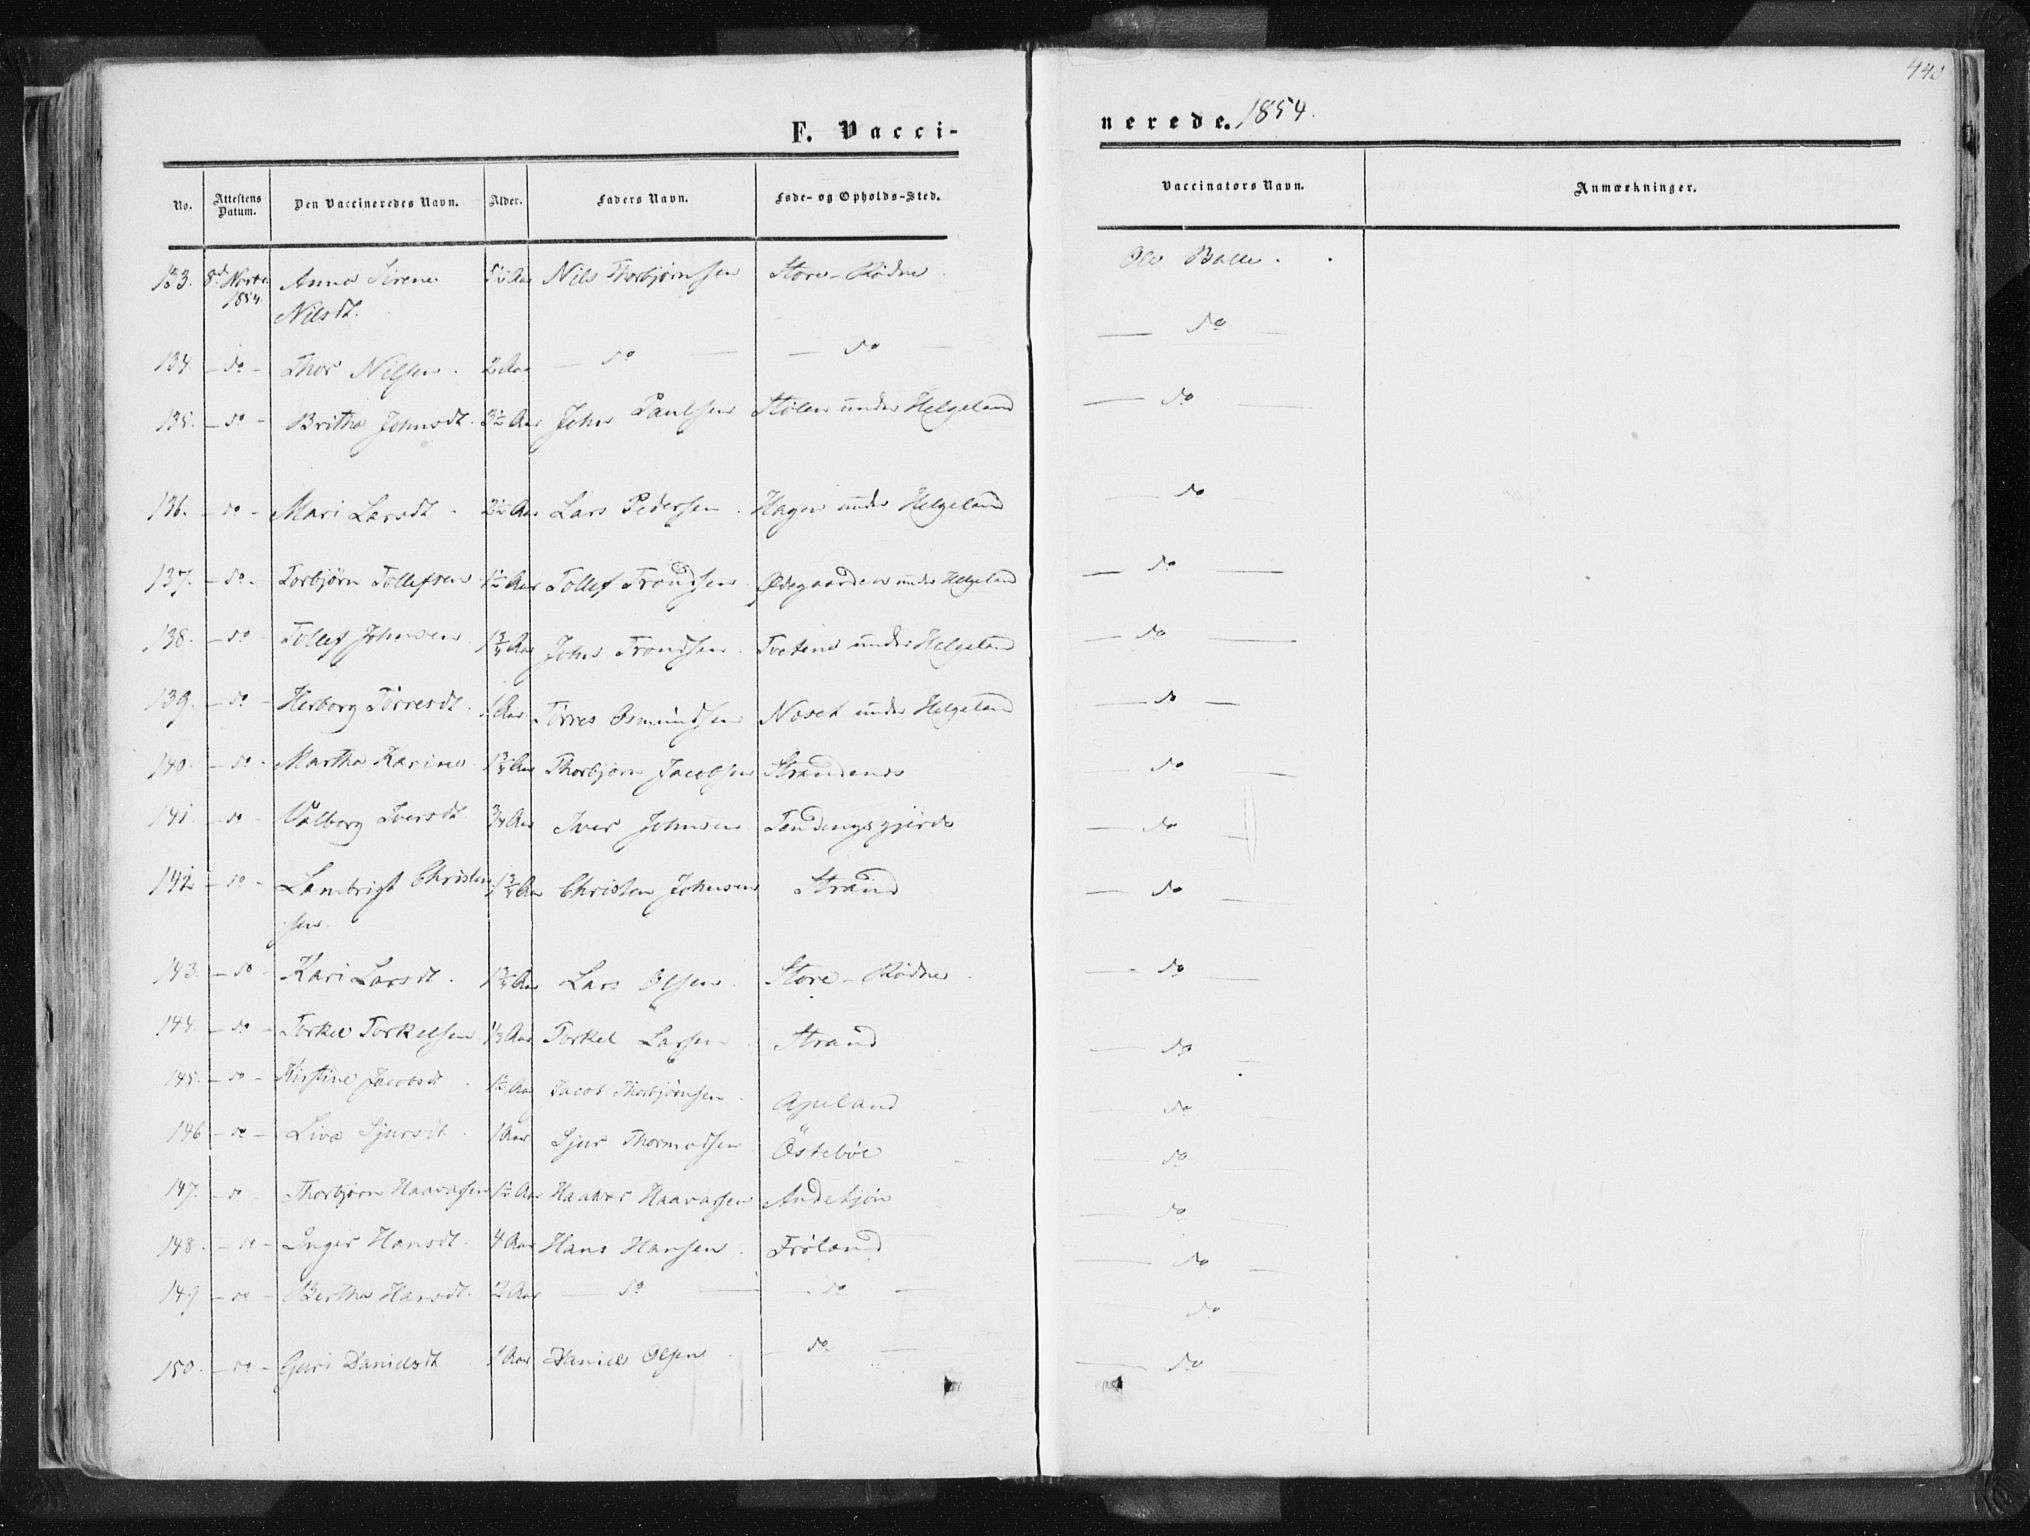 440
F. Vacci-
nerede. 1854.
No. Attestens Datum. Den Vaccineredes Navn. Alder. Faders Navn. Føde- og Opholds-Sted. Vaccinators Navn. Anmærkninger.
133. 8d 1854. Anna Sirene Nilsdt. Aar Nils Thorbjørnsen Store-Rødne. Ole Balle.
134. - do - Thor Nilsen. 2 Aar - do - - do - - do -
135. - do - Britha Johnsdt. 3½ Aar John Paulsen Stølen under Helgeland - do -
136. - do - Mari Larsdt. Aar Lars Pedersen. Hagen under Helgeland - do -
137. - do - Torbjørn Tollefsen 1½ Aar Tollef Trondsen. Ødegaarden under Helgeland - do -
138. - do - Tollef Johnsen 1¾ Aar John Trondsen. Tveten under Helgeland - do -
139. - do - Herborg Tørresdt. 1 Aar Tørres Osmundsen Neset under Helgeland - do -
140. - do - Martha Karine 1¾ Aar Thorbjørn Jacobsen - do -
141. - do - Valborg Iversdt. ¾ Aar Iver Johnsen - do -
142 - do - Lambrigt Christensen. 1¾ Aar Christen Johnsen Strand - do -
143. - do - Kari Larsdt. 1¾ Aar Lars Olsen Store-Rødne - do -
144. - do - Torkel Torkelsen Aar Torkel Larsen. Strand - do -
145. - do - Kirstine Jacobsdt. 1½ Aar Jacob Thorbjørnsen. Apeland - do -
146 - do - Siursdt. 1 Aar Sjur Thormodsen Östebøe - do -
147. - do - Thorbjørn Haavarsen 1½ Aar Haavar Haavarsen - do -
148. - do - Inger Hansdt. 4 Aar Hans Hansen. Frøland - do -
149 - do - Bertha Hansdt. 2 Aar - do - - do - - do -
150. - do - Guri Danielsdt 1 Aar Daniel Olsen. - do - - do -